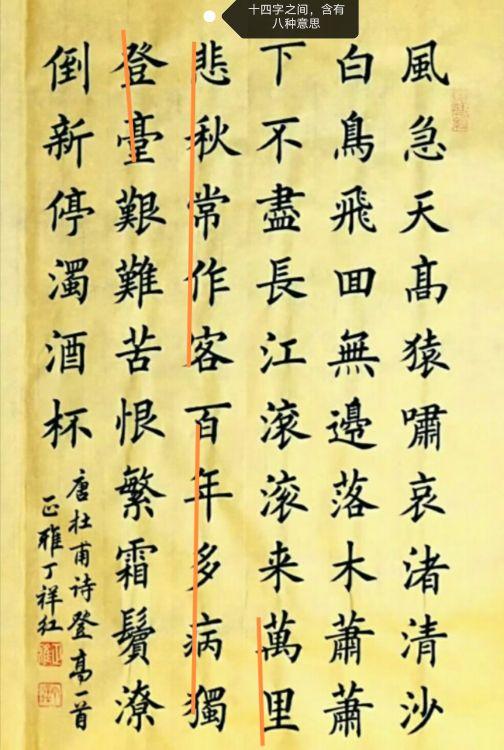 十四字之间，含有
八种意思
風急天髙猿嘯哀渚清沙
白鳥飛囬無邊落木蕭蕭
下不盡長江滚滚来萬里
悲秋常作客百年多病獨
登臺艱難苦恨繁霜鬢潦
倒新停濁酒杯
唐杜甫诗登高一首
正雅丁祥红